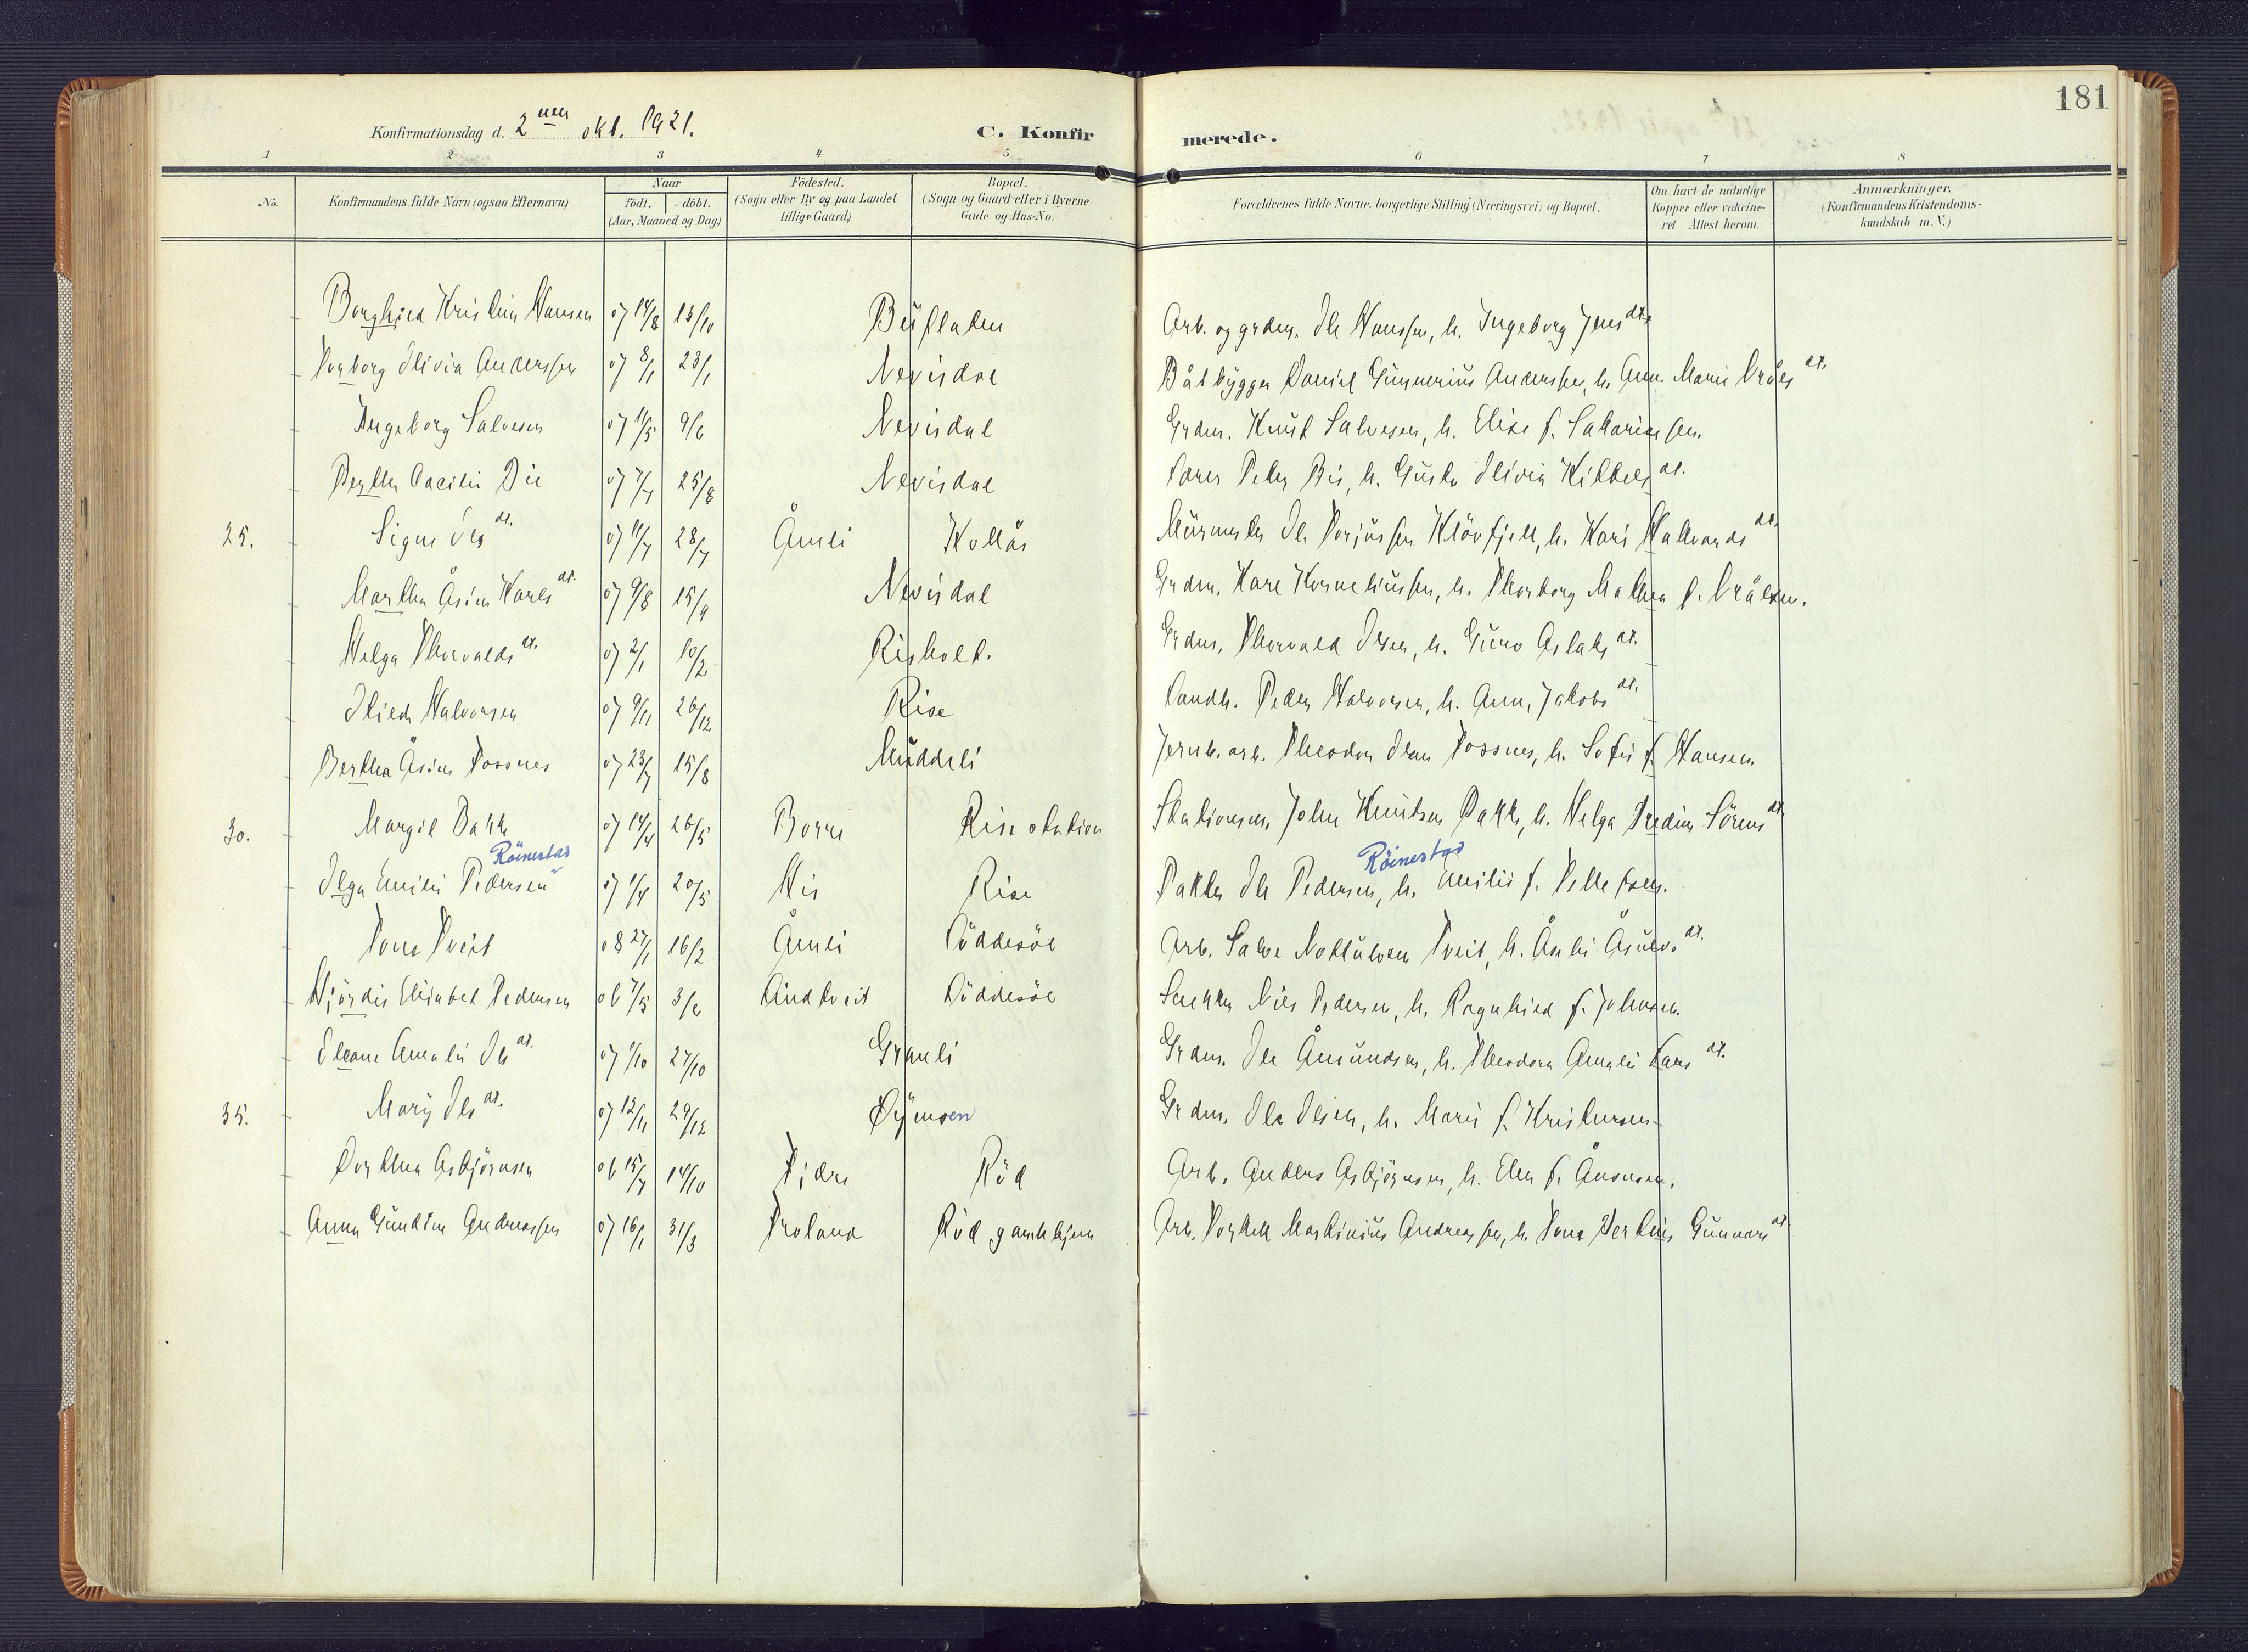 181
Konfirmationsdag d. 2nen okt. 1921.
C. Konfirmerede.
1 2 3 4 5 6 7 8
No.
Konfirmandens fulde Navn (ogsaa Efternavn)
Naar
födt. döbt.
(Aar, Maaned og Dag)
Födested.
(Sogn eller By og paa Landet tillige Gaard)
Bopæl.
(Sogn og Gaard eller i Byerne Gade og Hus-No.
Forældrenes fulde Navne, borgerlige Stilling (Næringsvei) og Bopæl.
Om havt de naturlige Kopper eller vakcineret Attest herom.
Anmærkninger.
(Konfirmandens Kristendomskundskab m. V.)
Borghild Kristine Hansen 07 14/8 13/10 Arb. og grdm. Ole Hanssen, h. Ingeborg Jensdt.
Torborg Olivia Anderssen 07 8/1 23/1 Nevisdal Båtbygger Daniel Gunnerius Anderssen, h. Anne Marie Vrålsdt.
Ingeborg Salvesen 07 11/5 9/6 Nevisdal Grdm. Knut Salvesen, h. Elise f. Sakariassen.
Berthe Cacilie Bie 07 7/7 25/8 Nevisdal Lærer Peter Bie, h. Gusta Olivia Kittelsdt.
25. Signe Olsdt. 07 11/7 28/7 Åmli Kollås Murmester Ole Torjussen Klövfjell, h. Kari Hallvardsdt.
Martha Åsine Karlsdt. 07 9/8 15/9 Nevisdal Grdm. Karl Korneliussen, h. Thorborg Mathea f. Vrålsen.
Helga Thorvaldsdt. 07 2/1 10/2 Risholt. Grdm. Thorvald Olsen, h. Guro Aslaksdt.
Olied Halvorsen 07 9/11 26/12 Rise Landh. Peder Halvorsen, h. Anne Jakobsdt.
Bertha Åsine Tossnes 07 23/7 15/8 Muddeli Jernb. arb. Theodor Olsen Tossnes, h. Sofie f. Hansen
30. Margit Bakke 07 14/4 26/5 Borre Rise station Stationsm. John Knutsen Bakke, h. Helga Fredine Sörensdt.
Röinestad Röinestad
Olga Emilie Pedersen 07 1/4 20/5 His Rise Pakker Ole Pedersen, h. Emilie f. Pellessen.
Tone Tveit 08 27/1 16/2 Åmli Löddesöl Arb. Salve Nottulvsen Tveit, h. Åslei Åsulvsdt.
Hjördis Elisabet Pedersen 06 7/5 3/6 Lindtveit Löddesöl Snekker Nils Pedersen, h. Ragnhild f. Johnsen.
Eleane Amalie Olsdt. 07 1/10 27/10 Granli Grdm. Ole Åmundsen, h. Theodora Amalie Larsdt.
35. Mary Olsdt. 07 12/11 29/12 Øymoen Grdm. Ole Olsen, h. Marie f. Kristensen.
Dorthea Asbjörnsen 06 15/7 14/10 Röd Arb. Anders Asbjörnsen, h. Elen f. Ånonsen.
Anna Gundine Andreassen 07 16/1 31/3 Froland Röd gamlehjem Arb. Torkell Martinius Andreassen, h. Tone Terkine Gunnarsdt.